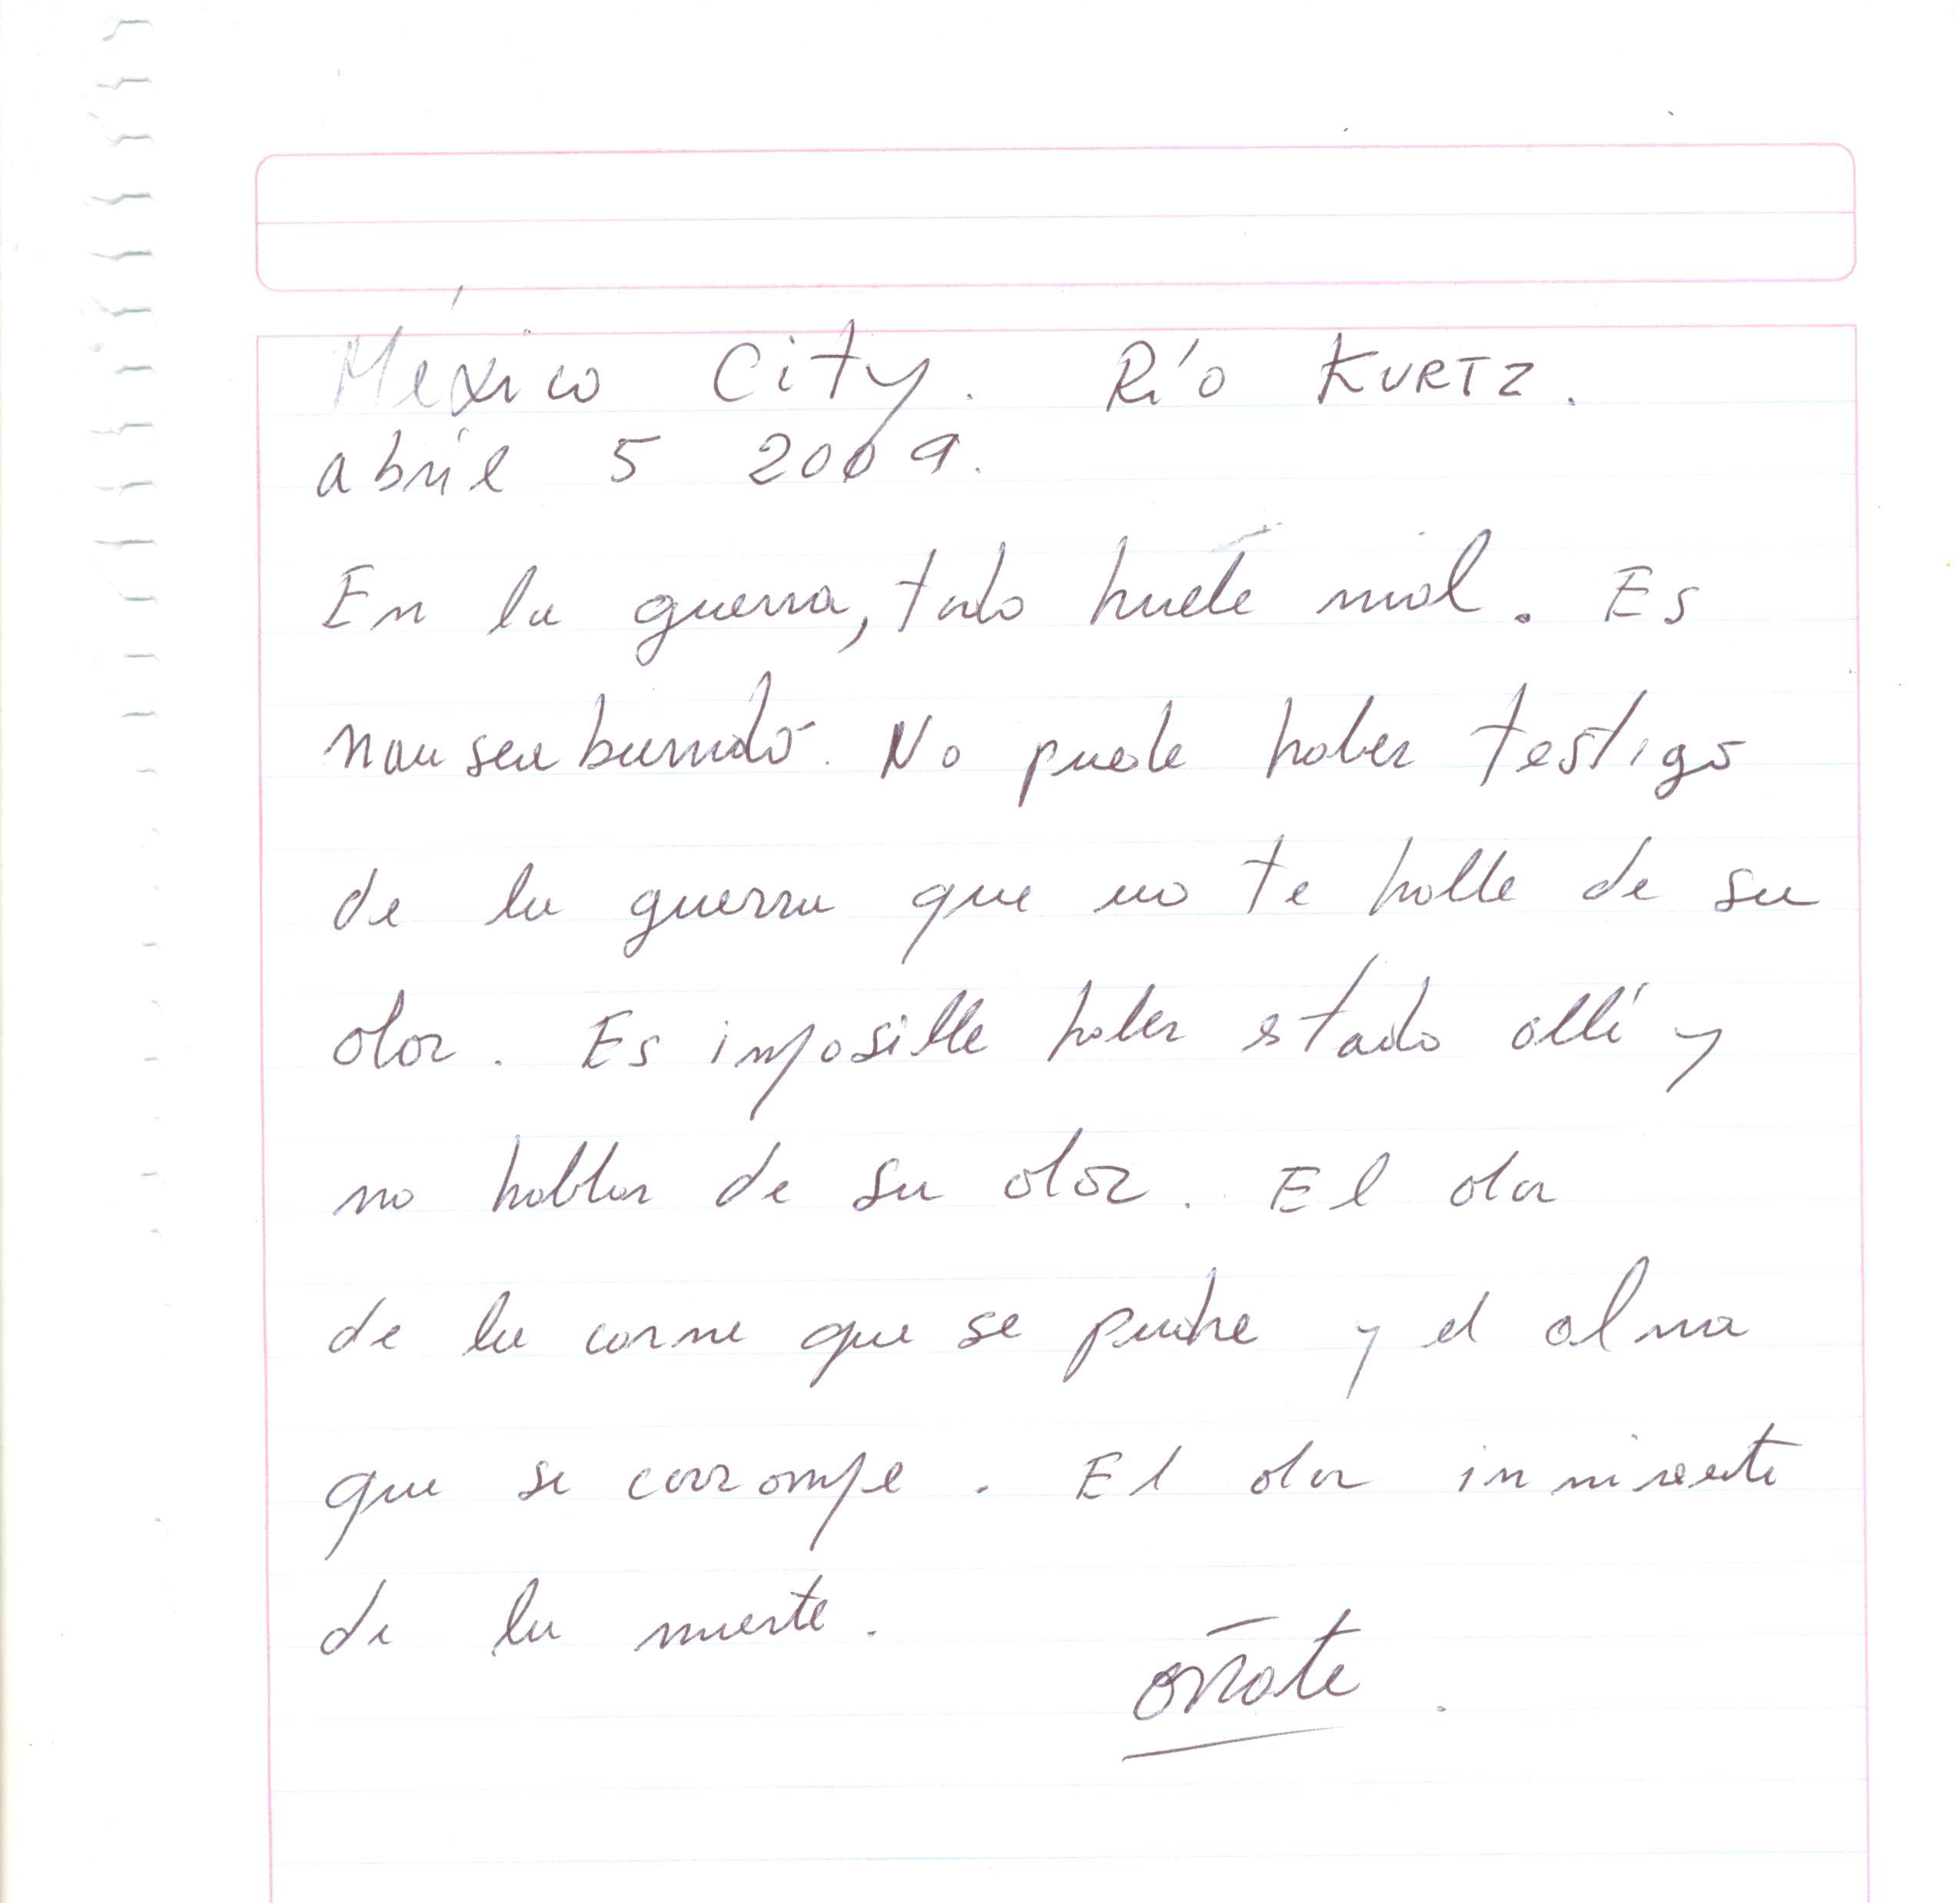 México City. Río KURTZ.
abril 5 2009.
En la guerra, todo huele mal. Es
nauseabundo. No puede haber testigo
de la guerra que no te hable de su
olor. Es imposible haber estado allí y
no hablar de su olor. El olor
de la carne que se pudre y el alma
que se corrompe. El olor inminente
de la muerte.
oñate.